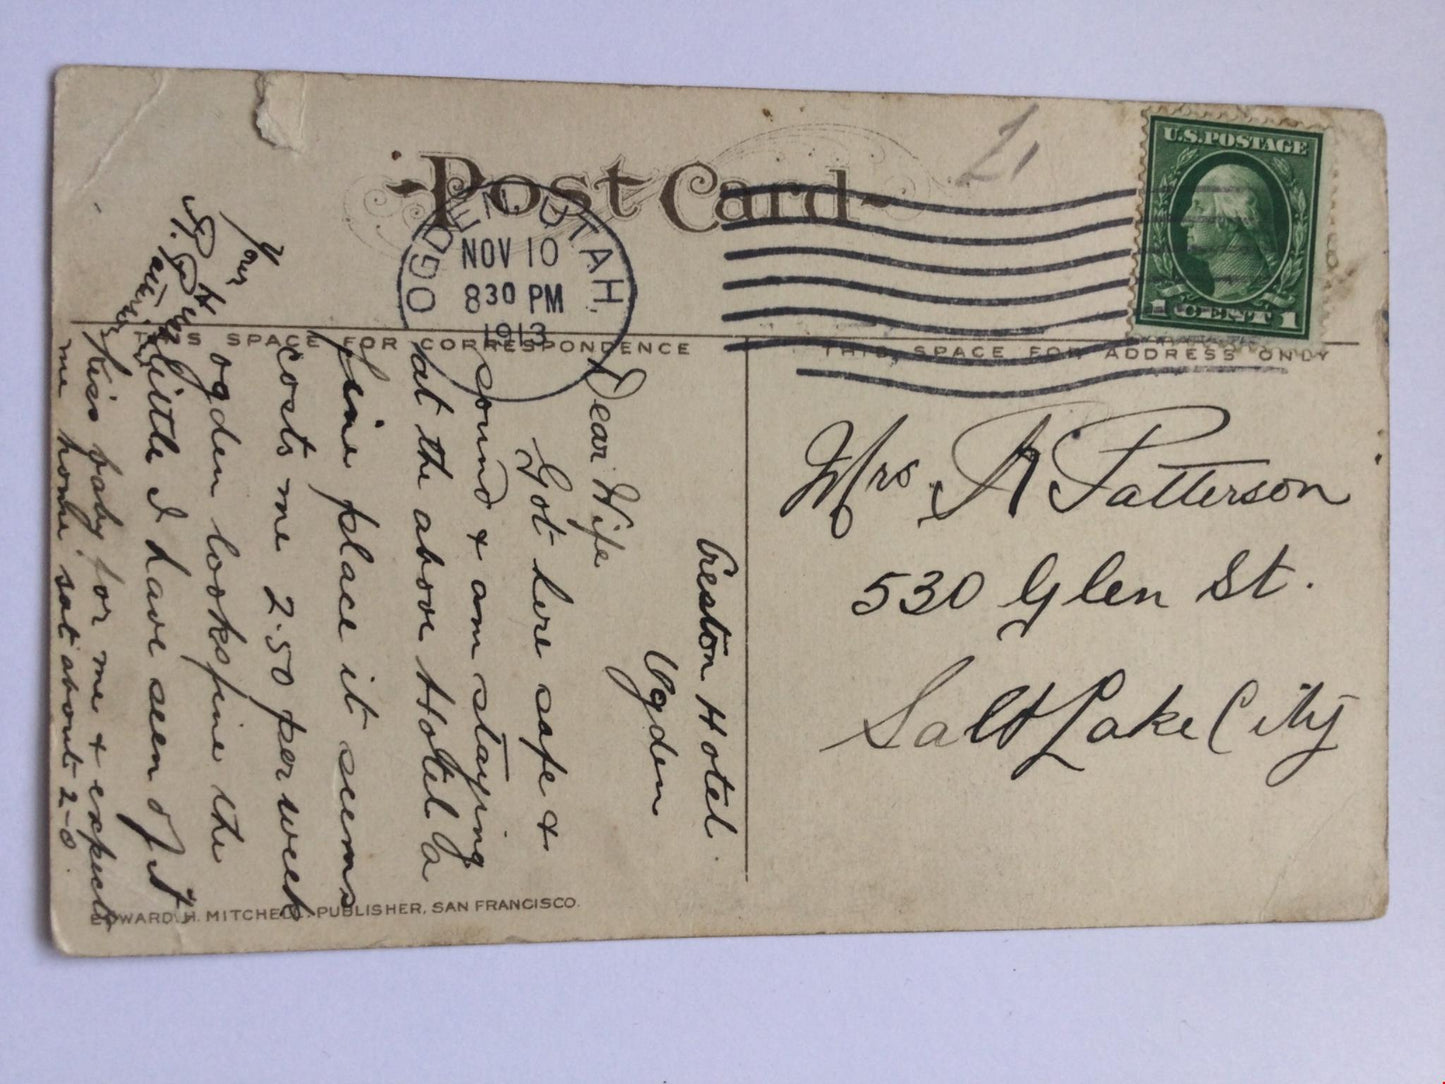 Post Card
OGDEN, UTAH.
NOV 10
8 30 PM
1913
U.S. POSTAGE
1 CENT 1
THIS SPACE FOR CORRESPONDENCE
THIS SPACE FOR ADDRESS ONLY
Mrs. A Patterson
530 Glen St.
Salt Lake City
Creston Hotel
Ogden
Dear Wife
Got here safe &
sound & am staying
at the above Hotel a
fine place it seems
costs me 2.50 per week
ogden looks fine the
little I have seen of it
Kiss baby for me & expect
me home sat about 2-0
Your
EDWARD H. MITCHELL, PUBLISHER, SAN FRANCISCO.